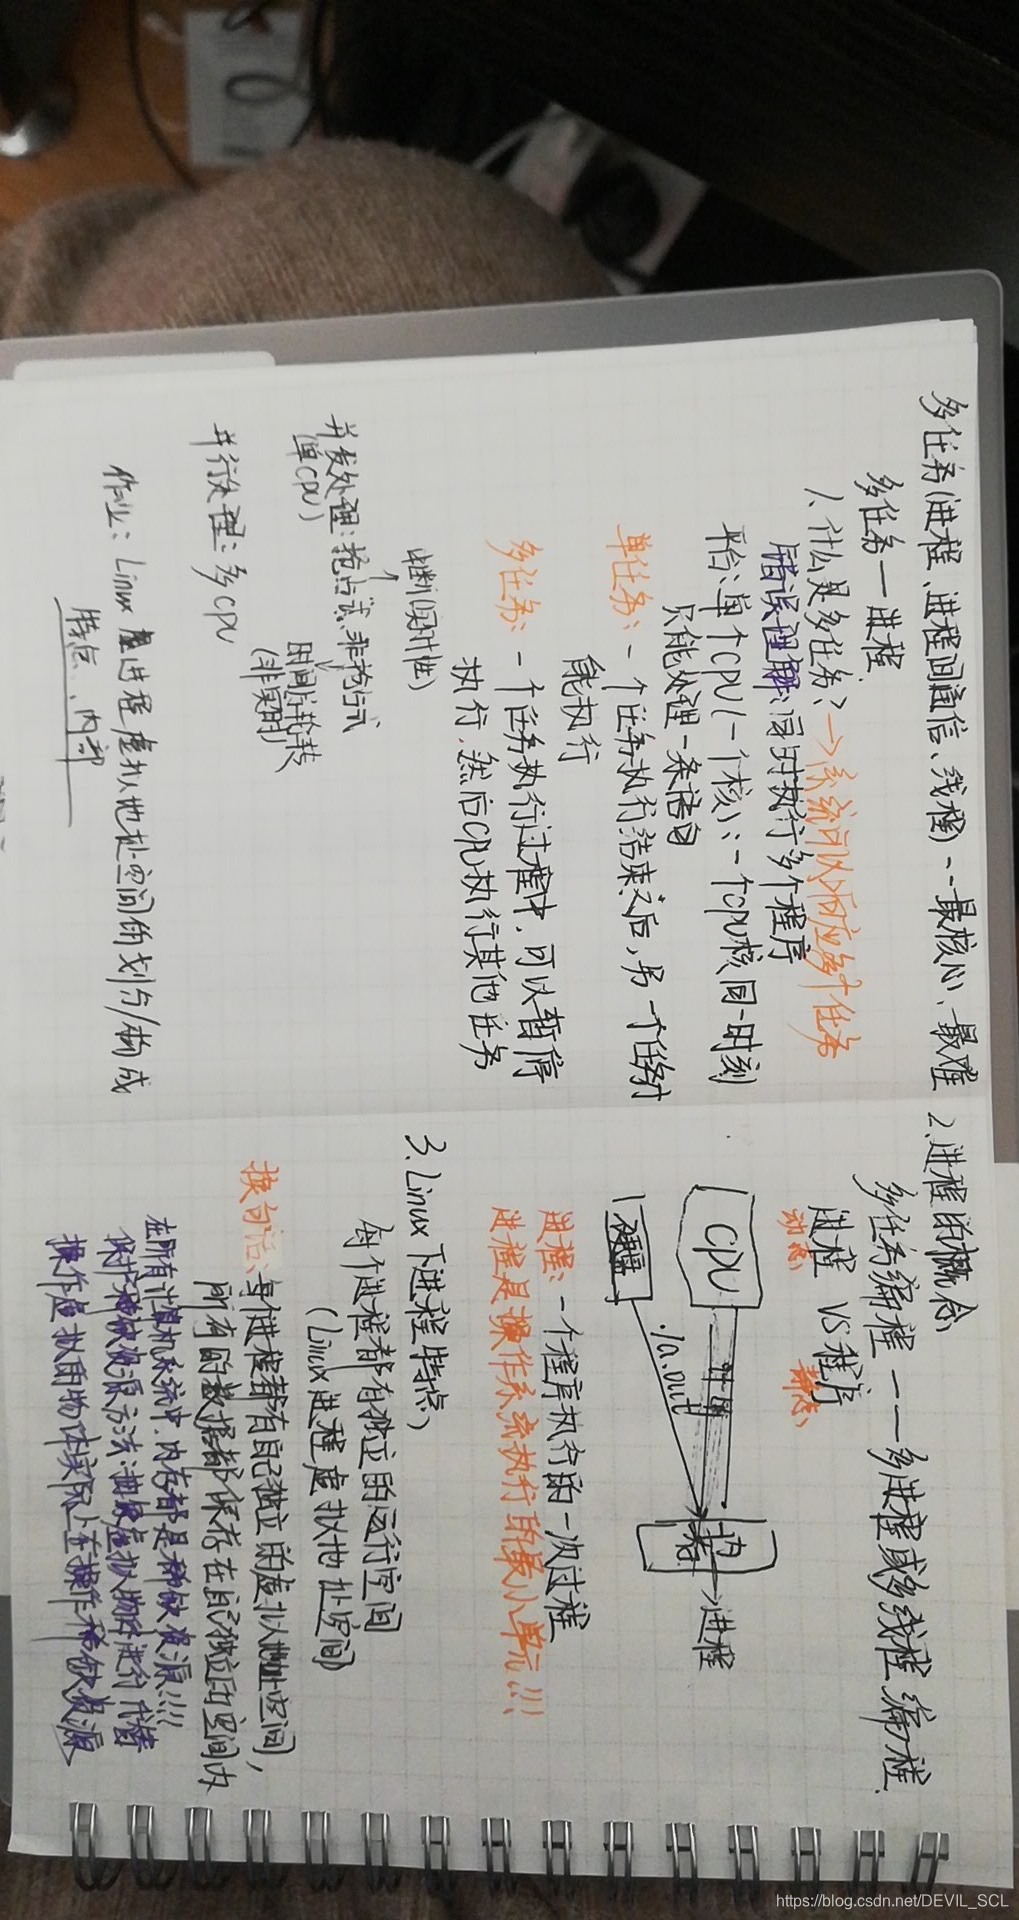 多任务(进程、进程间通信、线程)--最核心、最难
多任务—进程
1、什么是多任务?→系统可以响应多个任务
错误理解:同时执行多个程序
平台:单个CPU(一个核):一个CPU核同一时刻
只能处理一条语句
单任务:一个任务执行结束之后,另一个任务才
能执行
多任务:一个任务执行过程中,可以暂停
执行,然后CPU执行其他任务
实时性)
并发处理:抢占式、非抢占式
(单CPU)
时间片轮转
(非实时)
并行处理:多CPU
作业:Linux 进程虚拟地址空间的划分/构成
特点、内部
2.进程的概念
多任务编程——多进程或多线程编程
进程 VS 程序
动态 静态
CPU
硬盘
./a.out
内存
→进程
进程:一个程序执行的一次过程
进程是操作系统执行的最小单元!!!
3.Linux下进程特点
每个进程都有独立的运行空间
(Linux进程虚拟地址空间)
换句话:每个进程都有自己独立的虚拟地址空间,
所有的数据都保存在自己独立的空间内
在所有计算机系统中,内存都是稀缺资源!!!
保护稀缺资源方法:抽象虚拟物质进行代替
操作虚拟物体实际上在操作稀缺资源
https://blog.csdn.net/DEVIL_SCL